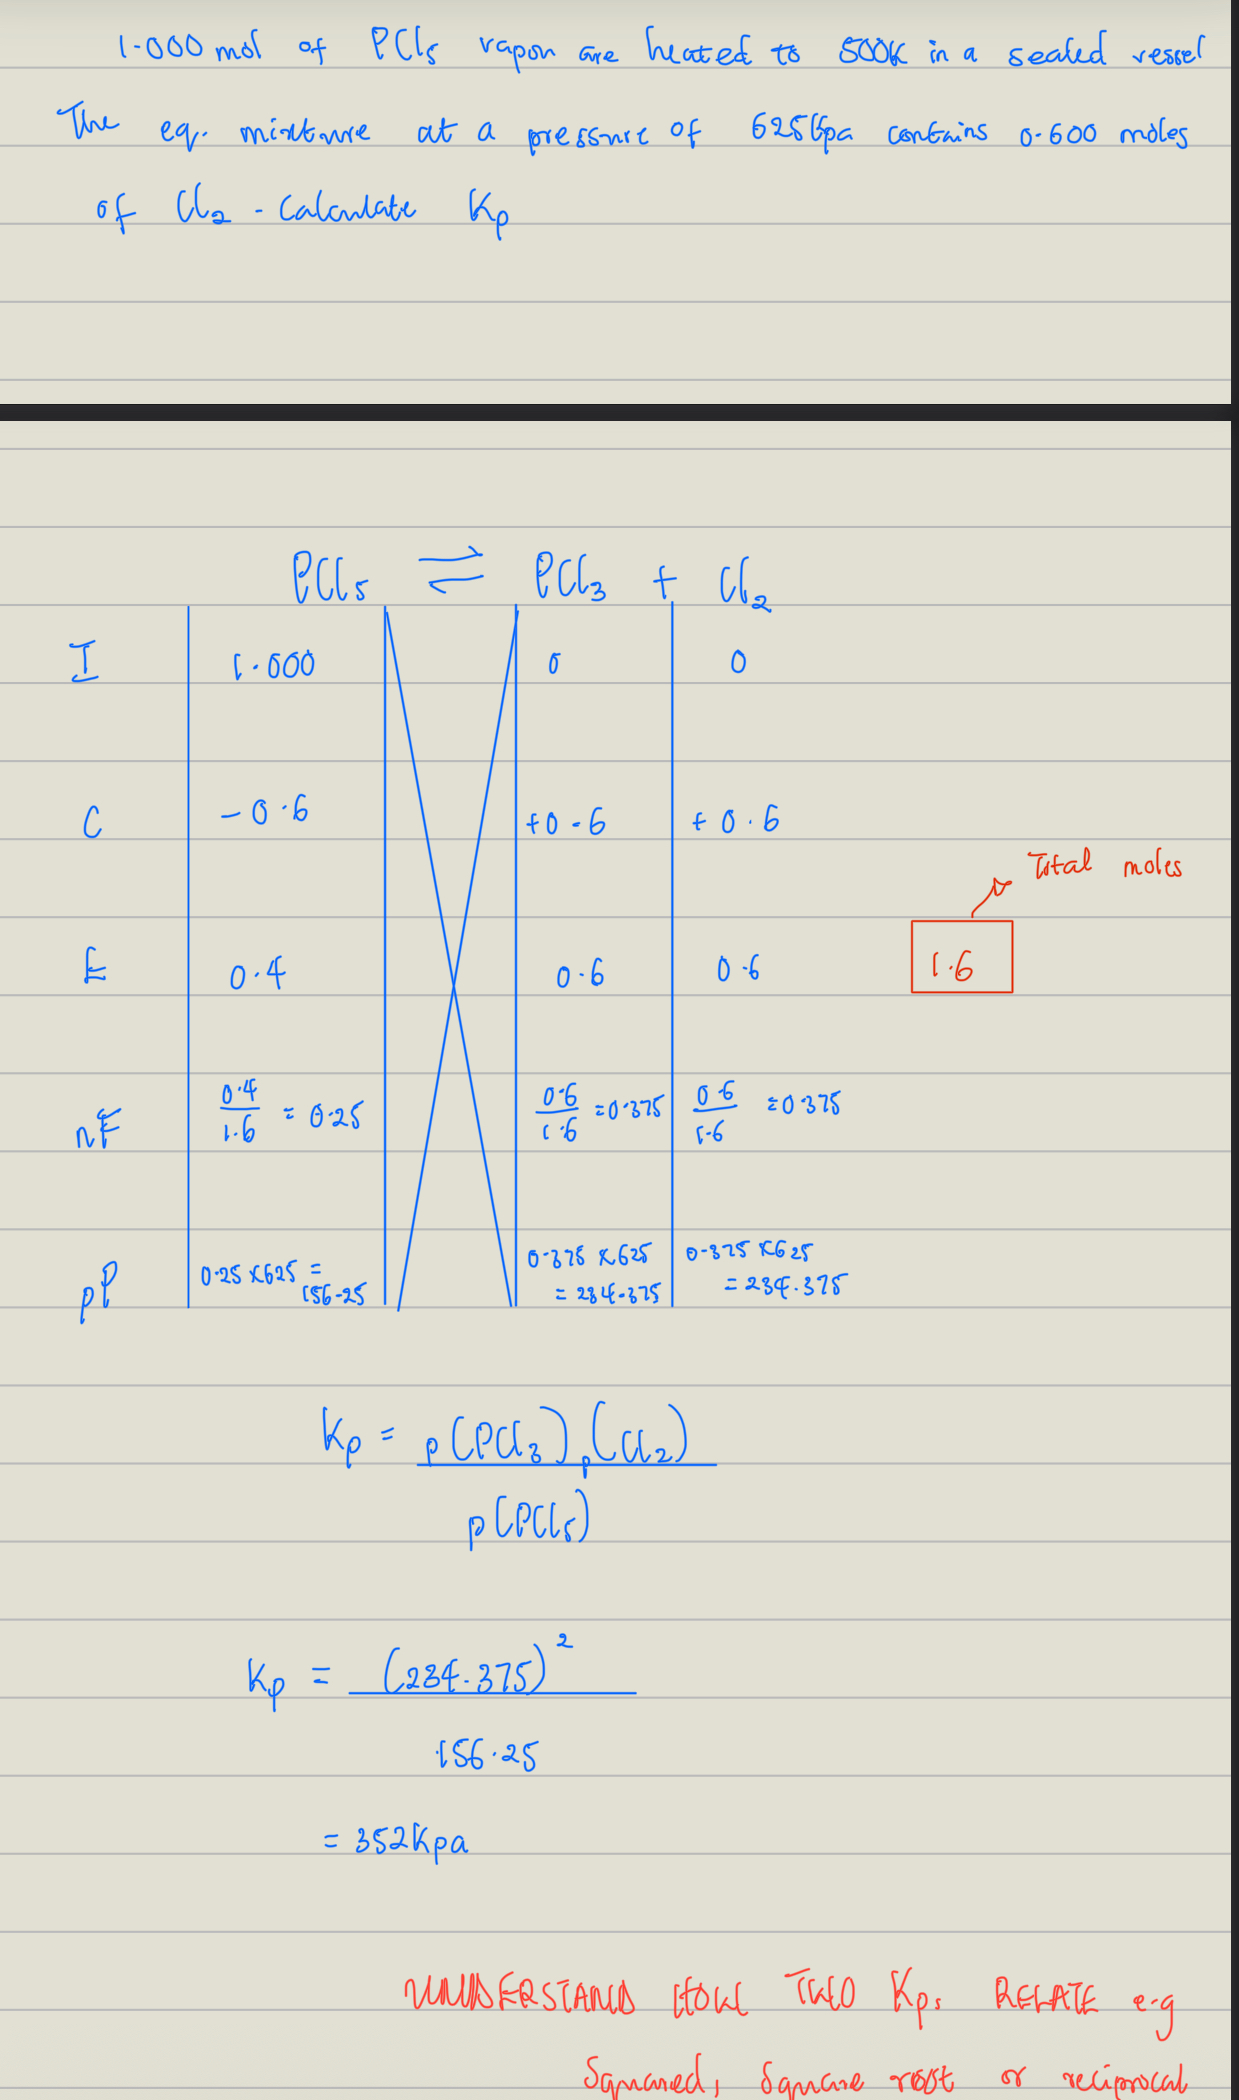 1.000 mol of PCl5 vapour are heated to 500K in a sealed vessel
The eq. mixture at a pressure of 625Kpa contains 0.600 moles
of Cl2 - Calculate Kp
PCl5 ⇌ PCl3 + Cl2
I 1.000 0 0
C -0.6 +0.6 +0.6
Total moles
E 0.4 0.6 0.6 1.6
nF 0.4/1.6 = 0.25 0.6/1.6 = 0.375 0.6/1.6 = 0.375
pP 0.25 x 625 = 156.25 0.375 x 625 = 234.375 0.375 x 625 = 234.375
Kp = p(PCl3) p(Cl2)
p(PCl5)
Kp = (234.375)²
156.25
= 352Kpa
UNDERSTAND HOW TWO Kps RELATE e.g
Squared, Square root or reciprocal